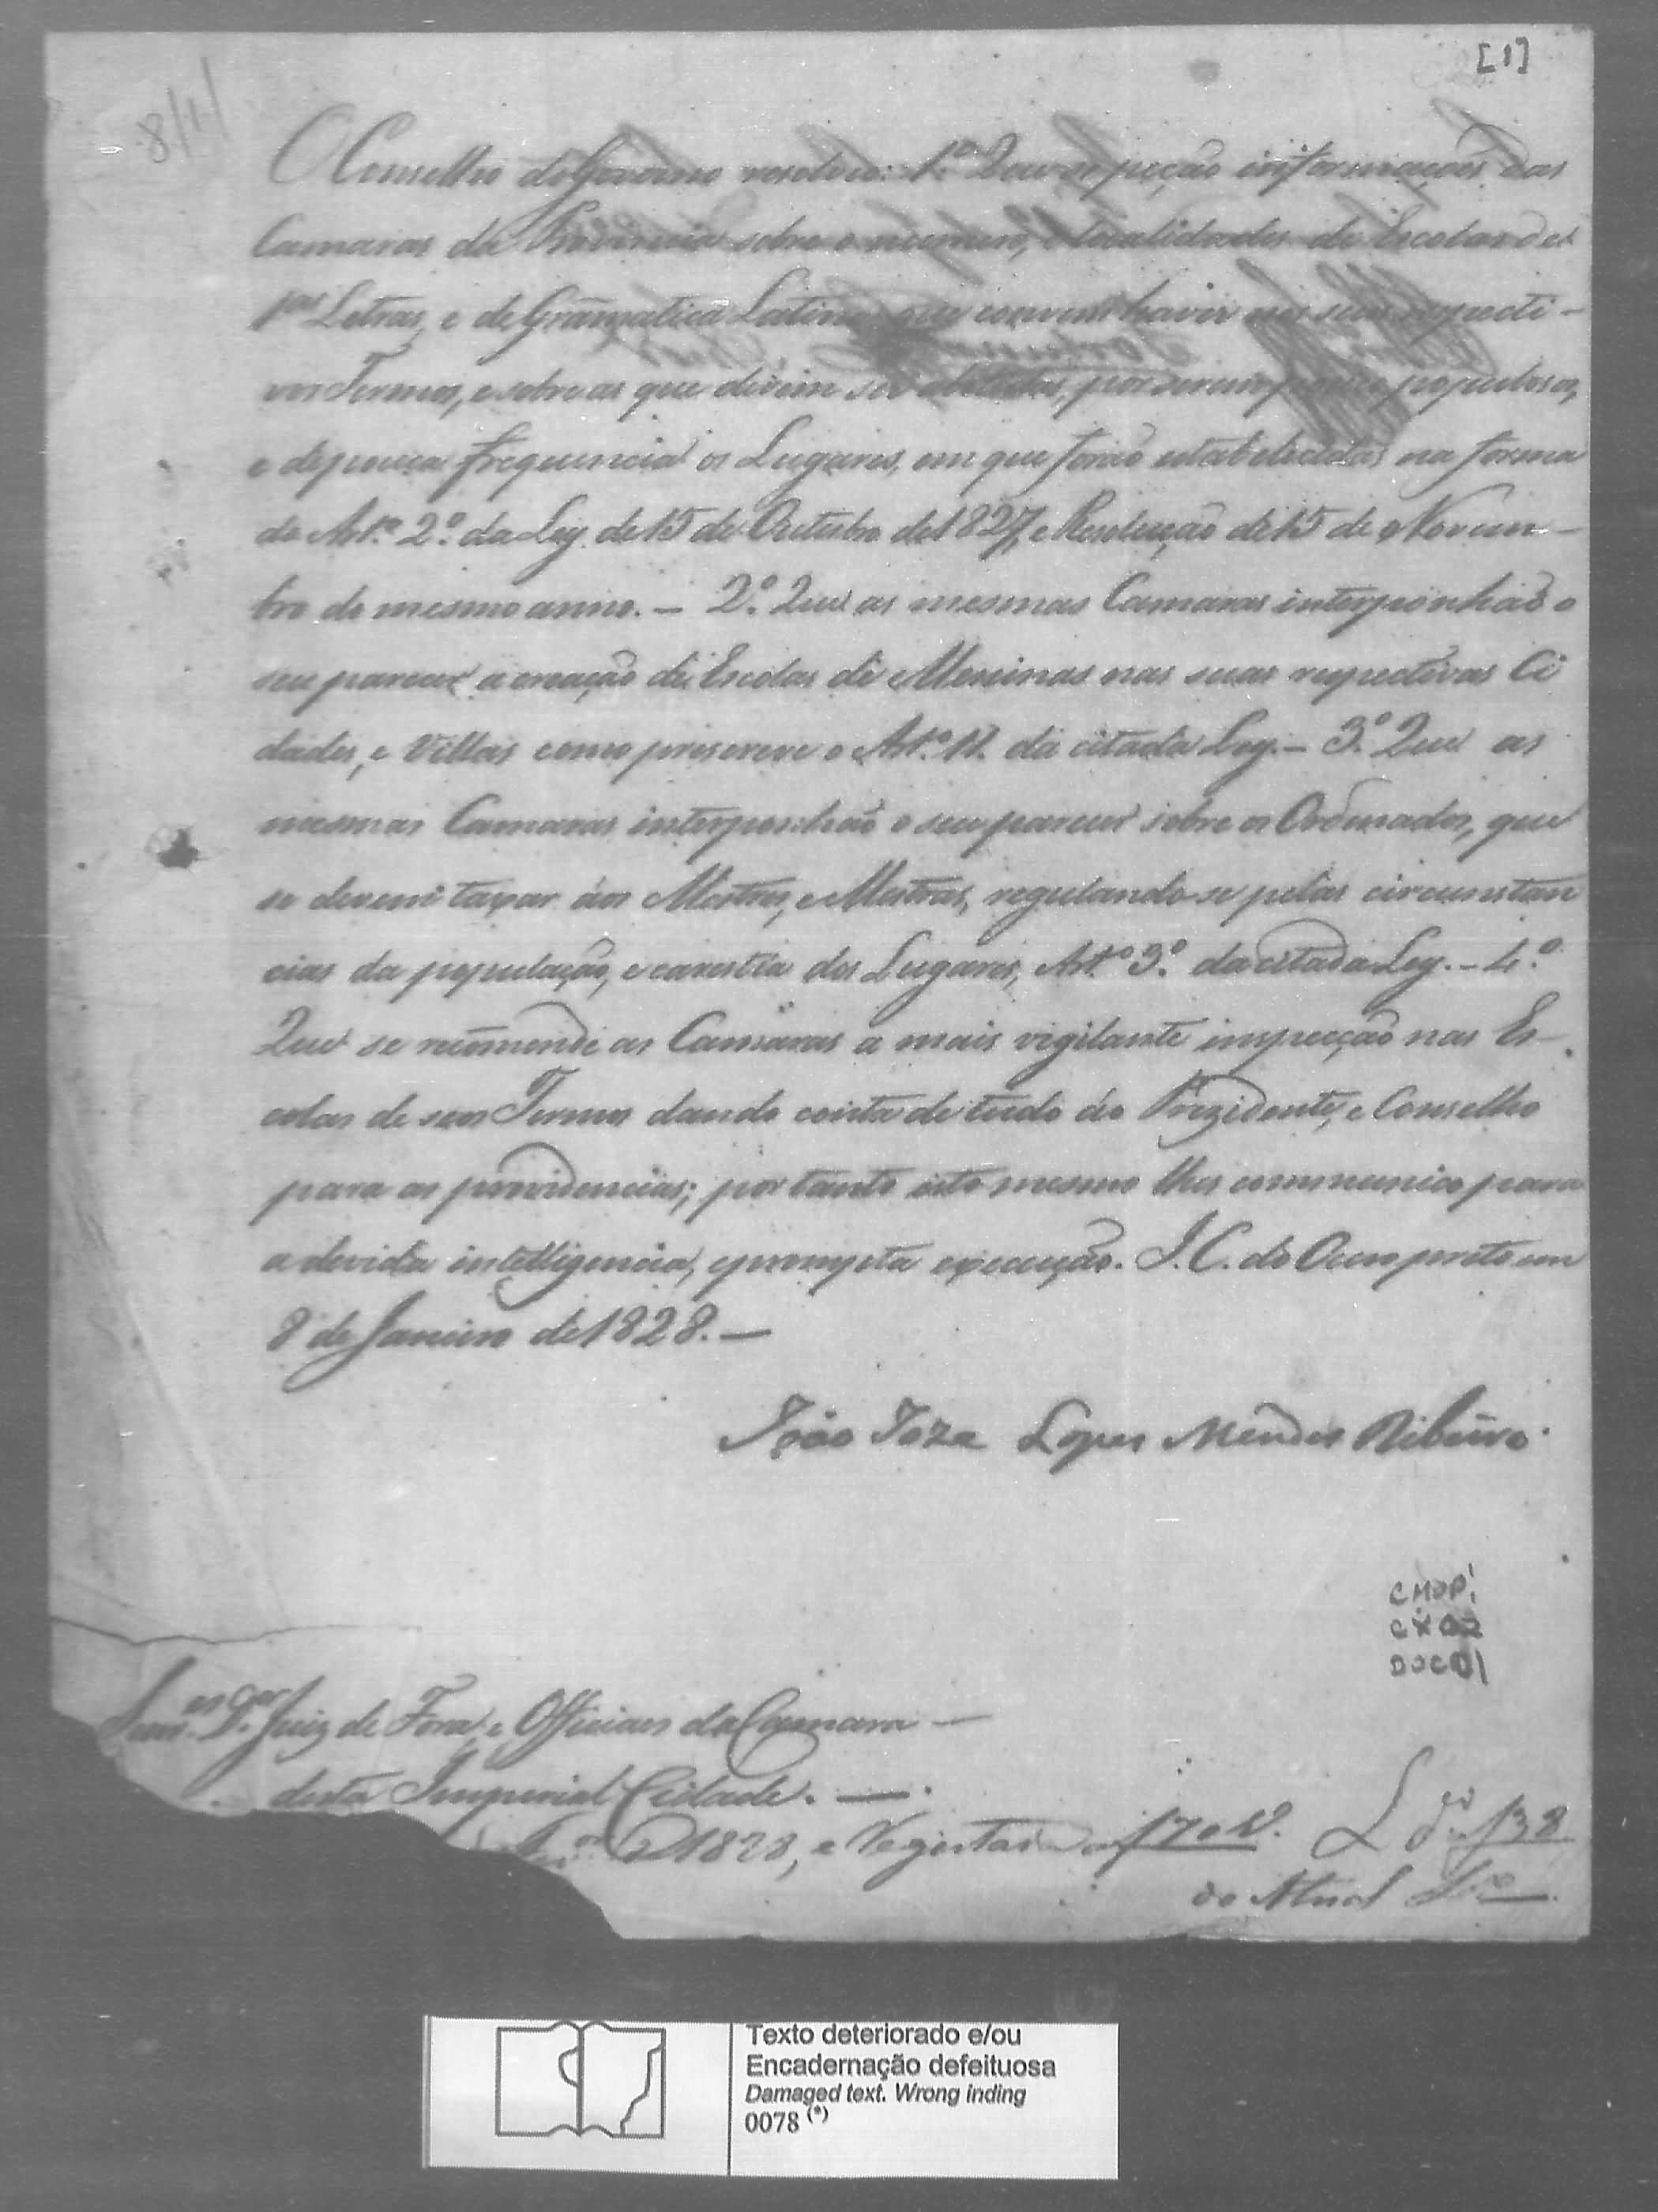 [1]
8/1/
O Conselho do Governo resolveo: 1.º Que se peção informaçoens das
Camaras da Provincia sobre o numero, e localidades de Escolas de
1.as Letras, e de Gramatica Latina que convem haver nos seus respecti-
vos Termos, e sobre as que devem ser abolidas, por serem pouco populosos,
e de pouca frequencia os Lugares, em que forão estabelecidas na forma
do Art.º 2.º da Ley de 15 de Outubro de 1827, e Resolução de 15 de Novem-
bro do mesmo anno. – 2.º Que as mesmas Camaras interponhão o
seu parecer a creação de Escolas de Meninas nas suas respectivas Ci
dades, e Villas como prescreve o Art.º 11. da citada Ley. – 3.º Que as
mesmas Camaras interponhão o seu parecer sobre os Ordenados, que
se devem taxar aos Mestres, e Mestras, regulando-se pelas circunstan
cias da população, e carestia dos Lugares, Art.º 3.º da citada Ley. – 4.º
Que se recomende as Camaras a mais vigilante inspecção nas Es-
colas de seos Termos dando conta de tudo áo Prezidente, e Conselho
para as providencias; por tanto isto mesmo lhes communico para
a devida intelligencia, e prompta execução. I. C. do Ouro preto em
8 de Janeiro de 1828. —
João Joze Lopes Mendes Ribeiro.
CMOP
CX 02
DOC 01
Juiz de Fora, e Officiaes da Camara —
desta Imperial Cidade. —
1828, e Registada
do Atual
Texto deteriorado e/ou
Encadernação defeituosa
Damaged text. Wrong inding
0078 (*)